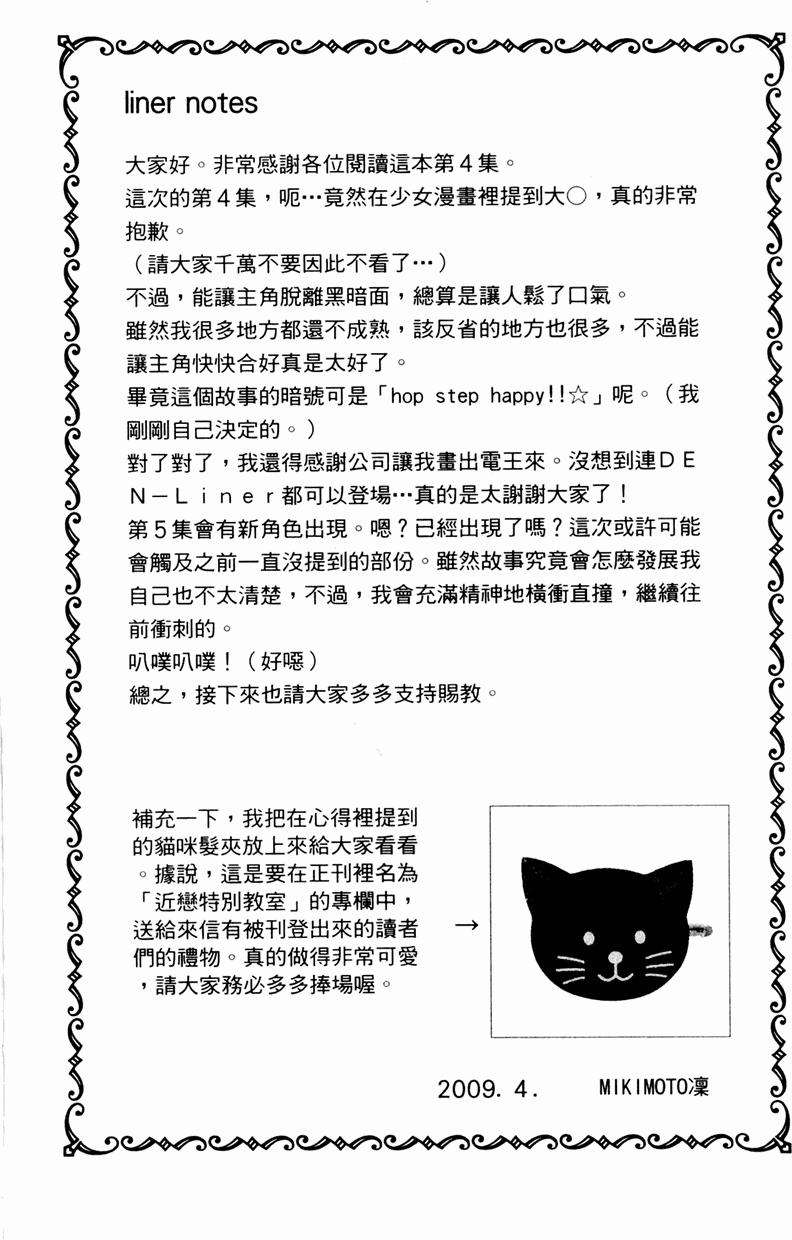 liner notes
大家好。非常感謝各位閱讀這本第４集。
這次的第４集，呃…竟然在少女漫畫裡提到大○，真的非常
抱歉。
（請大家千萬不要因此不看了…）
不過，能讓主角脫離黑暗面，總算是讓人鬆了口氣。
雖然我很多地方都還不成熟，該反省的地方也很多，不過能
讓主角快快合好真是太好了。
畢竟這個故事的暗號可是「hop step happy!!☆」呢。（我
剛剛自己決定的。）
對了對了，我還得感謝公司讓我畫出電王來。沒想到連ＤＥ
Ｎ－Ｌｉｎｅｒ都可以登場…真的是太謝謝大家了！
第５集會有新角色出現。嗯？已經出現了嗎？這次或許可能
會觸及之前一直沒提到的部份。雖然故事究竟會怎麼發展我
自己也不太清楚，不過，我會充滿精神地橫衝直撞，繼續往
前衝刺的。
叭噗叭噗！（好噁）
總之，接下來也請大家多多支持賜教。
補充一下，我把在心得裡提到
的貓咪髮夾放上來給大家看看
。據說，這是要在正刊裡名為
「近戀特別教室」的專欄中，
送給來信有被刊登出來的讀者
們的禮物。真的做得非常可愛
，請大家務必多多捧場喔。
→
2009. 4. MIKIMOTO凜